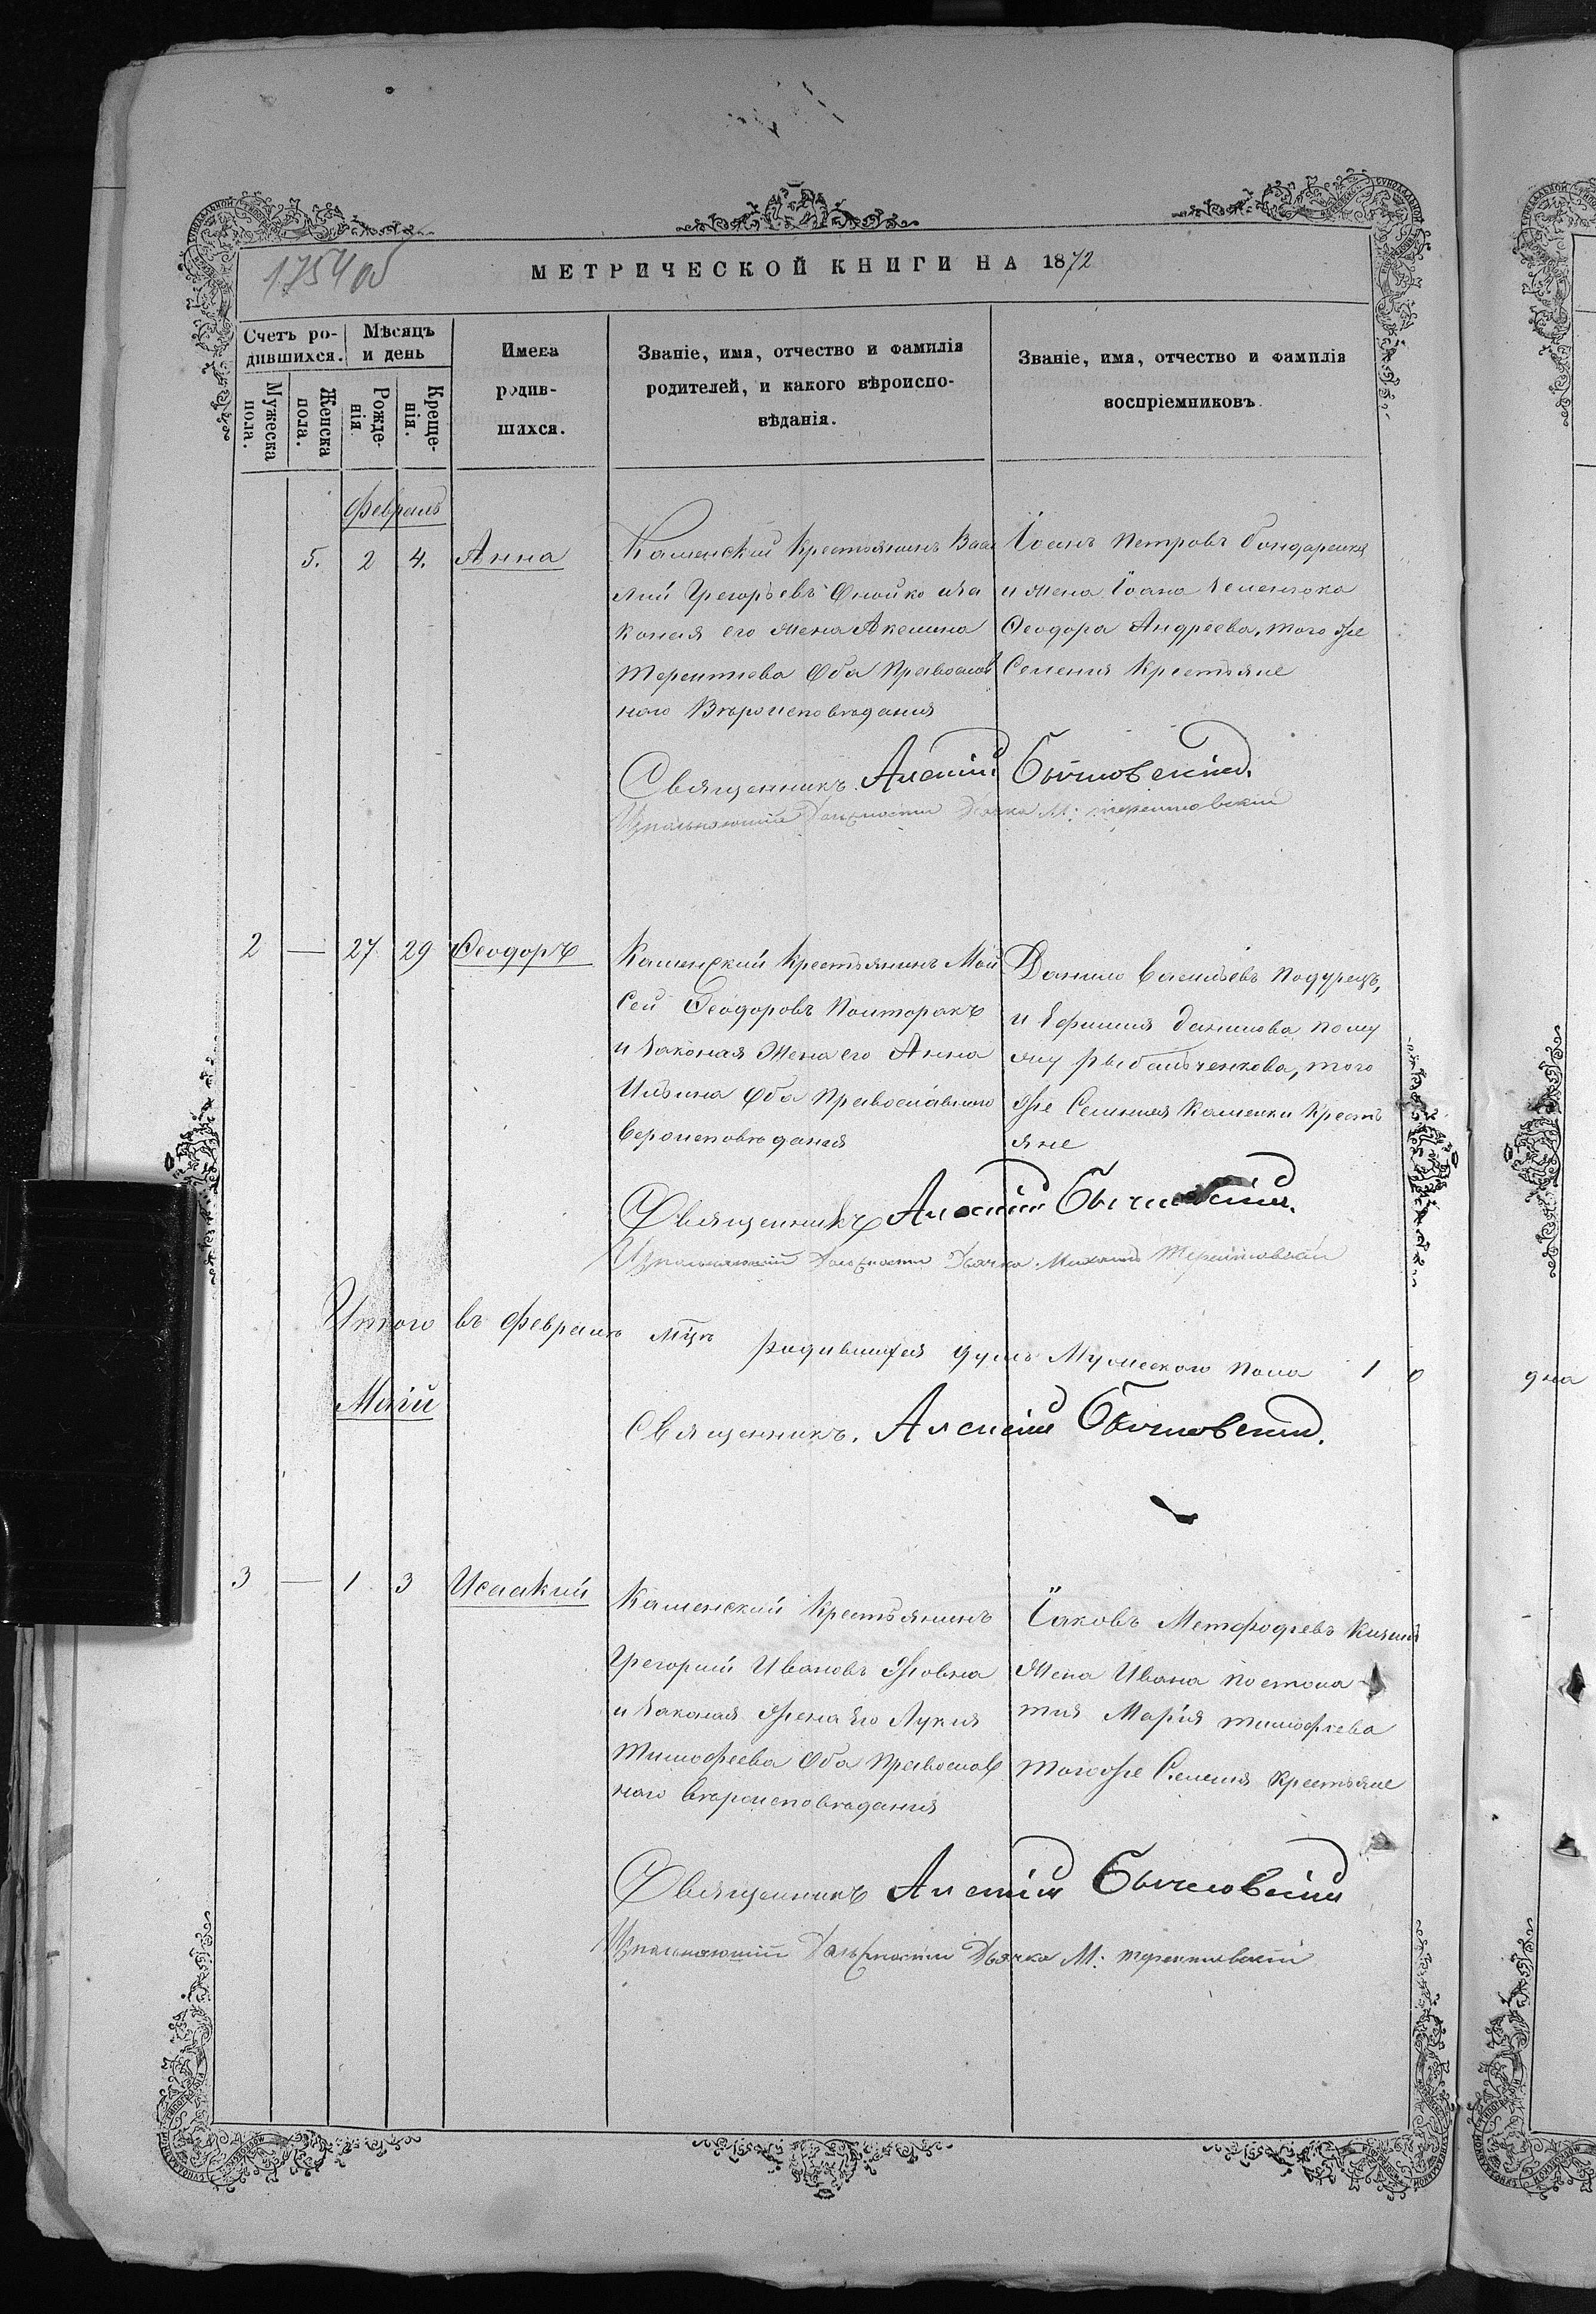 1754 об
МЕТРИЧЕСКОЙ КНИГИ НА 1872
Счетъ ро-
дившихся.
Мѣсяцъ
и день
Имена
родив-
шихся.
Званіе, имя, отчество и фамилія
родителей, и какого вѣроиспо-
вѣданія.
Званіе, имя, отчество и фамилія
воспріемниковъ
Мужеска
пола.
Женска
пола.
Рожде-
нія
Креще-
нія.
Февраль
5. 2 4. Анна
Каменскій Крестьянинъ Васи
лій Грегорьевъ
коная его жена Акелина
Терентиева Оба Православ
ного Вѣроисповѣдания
Їоанъ Петровъ бондаренко
и жена Їоана
Ѳеодора Андреева, того же
Селения Крестьяне
Священникъ Алексій Бычковскій.
Изполняющій Должности Дьячка М: терентовскій
2 — 27 29 Ѳеодоръ
Каменский Крестьянинъ Мой
сей Ѳеодоровъ Полторакъ
и законая Жена его Анна
Ильина Оба Православного
Вероисповѣдания
Данило Васильевъ Подурецъ,
и Ефимия данилова по му
жу рыбальченкова, того
же Селения Каменки Кресть
яне
Священникъ Алексій Бычковскій.
Изполняющій Должности Дьячка Михаилъ Терентовскій
Итого въ Февралѣ мцѣ родившихся душъ Мужеского пола 1 о дна
Маій
Священникъ. Алексій Бычковскій.
3 — 1 3 Исаакий
Каменский Крестьянинъ
Грегорий Ивановъ Жовна
и законая жена его Лукия
Тимофеева Оба Православ
ного вѣроисповѣдания
Їаковъ Метфодіевъ
Жена Ивана
Марія тимофеева
тогоже Селения Крестьяне
Священникъ Алексій Бычковскій
Изполняющій Должности Дьячка М: терентовскій